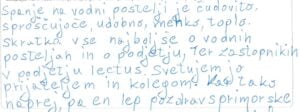 Spanje na vodni postelji je čudovito,
sproščujoče, udobno, mehko, toplo.
Skratka vse najboljše o vodnih
posteljah in o podjetju, ter zastopnikih
v podjetju lectus. Svetujem jo
prijateljem in kolegom, kar tako
naprej, pa en lep pozdrav s primorske